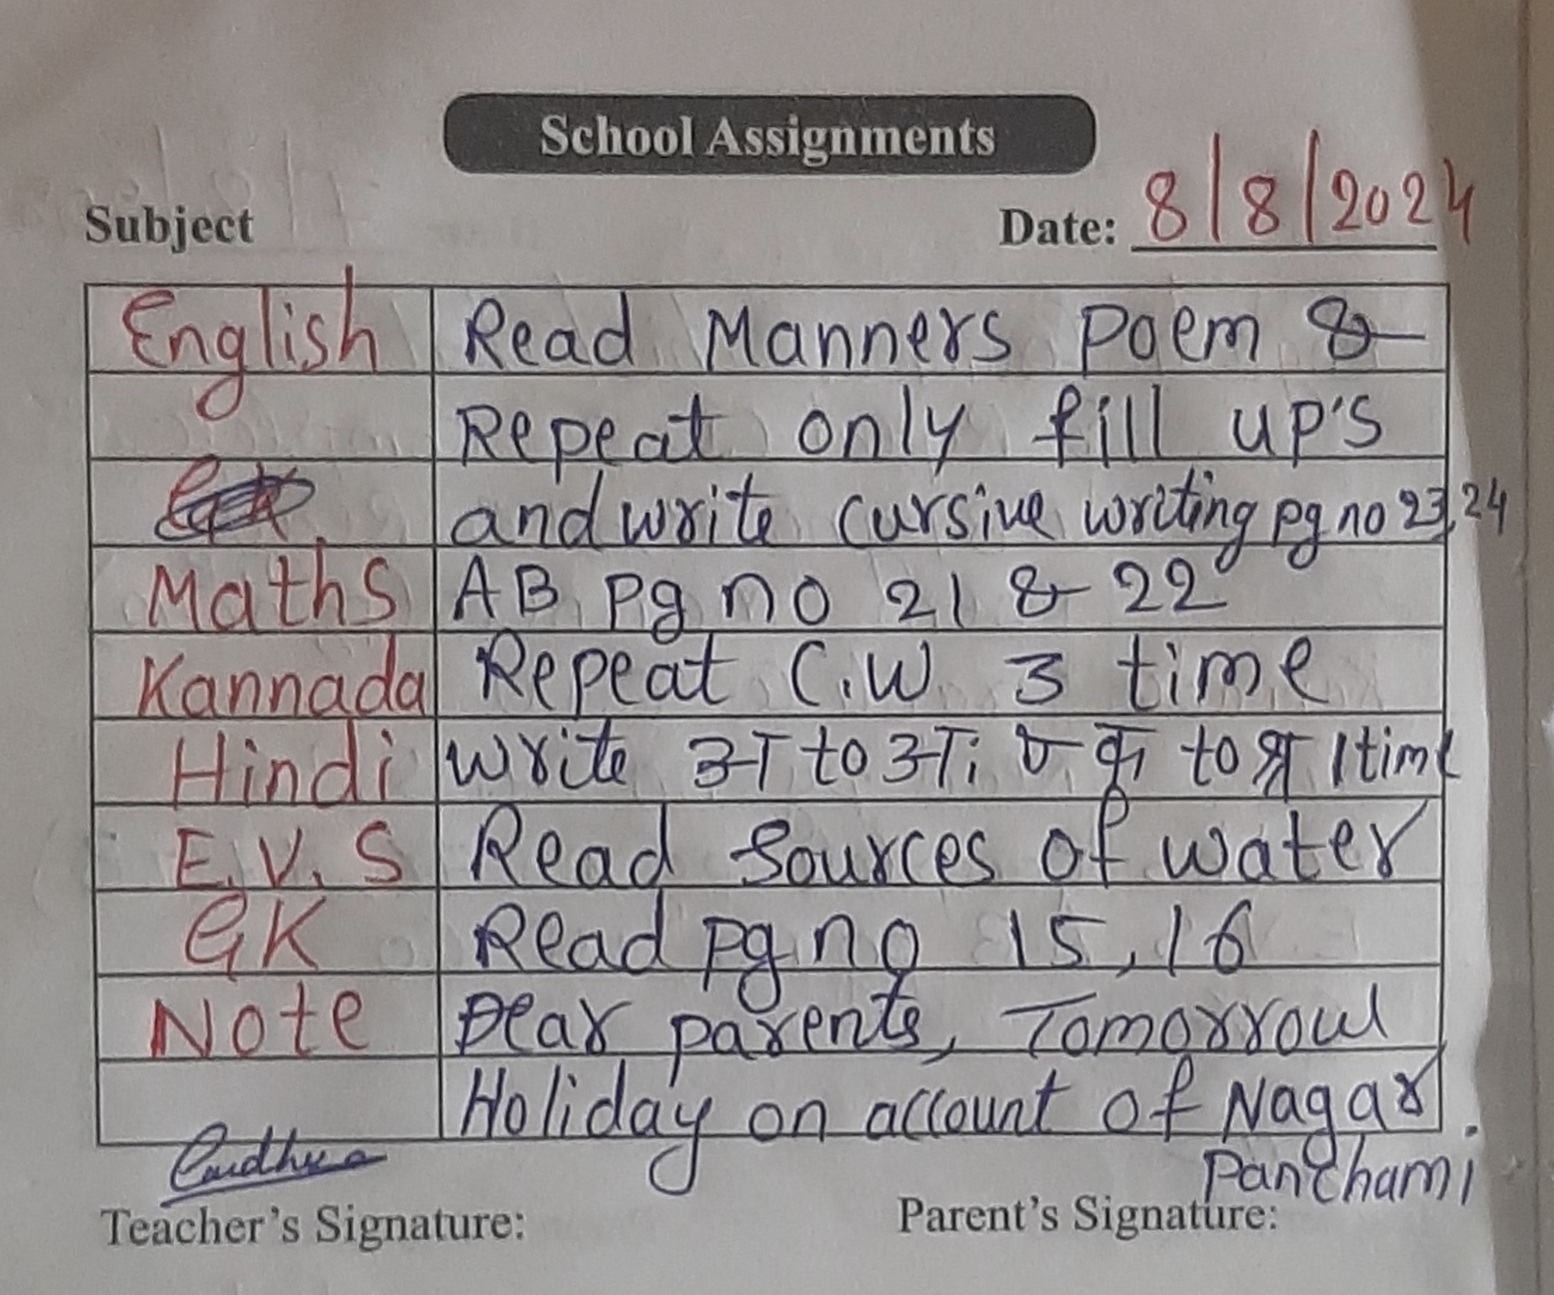 School Assignments
Subject Date: 8/8/2024
English Read Manners Poem &
Repeat only fill up's
and write cursive writing pg no 23, 24
Maths AB Pg no 21 & 22
Kannada Repeat C.W 3 time
Hindi Write अ to अः क to श्र 1 time
E.V.S Read Sources of water
GK Read pg no 15, 16
Note Dear parents, Tomorrow
Holiday on account of Nagar
Panchami.
Teacher's Signature: Parent's Signature: